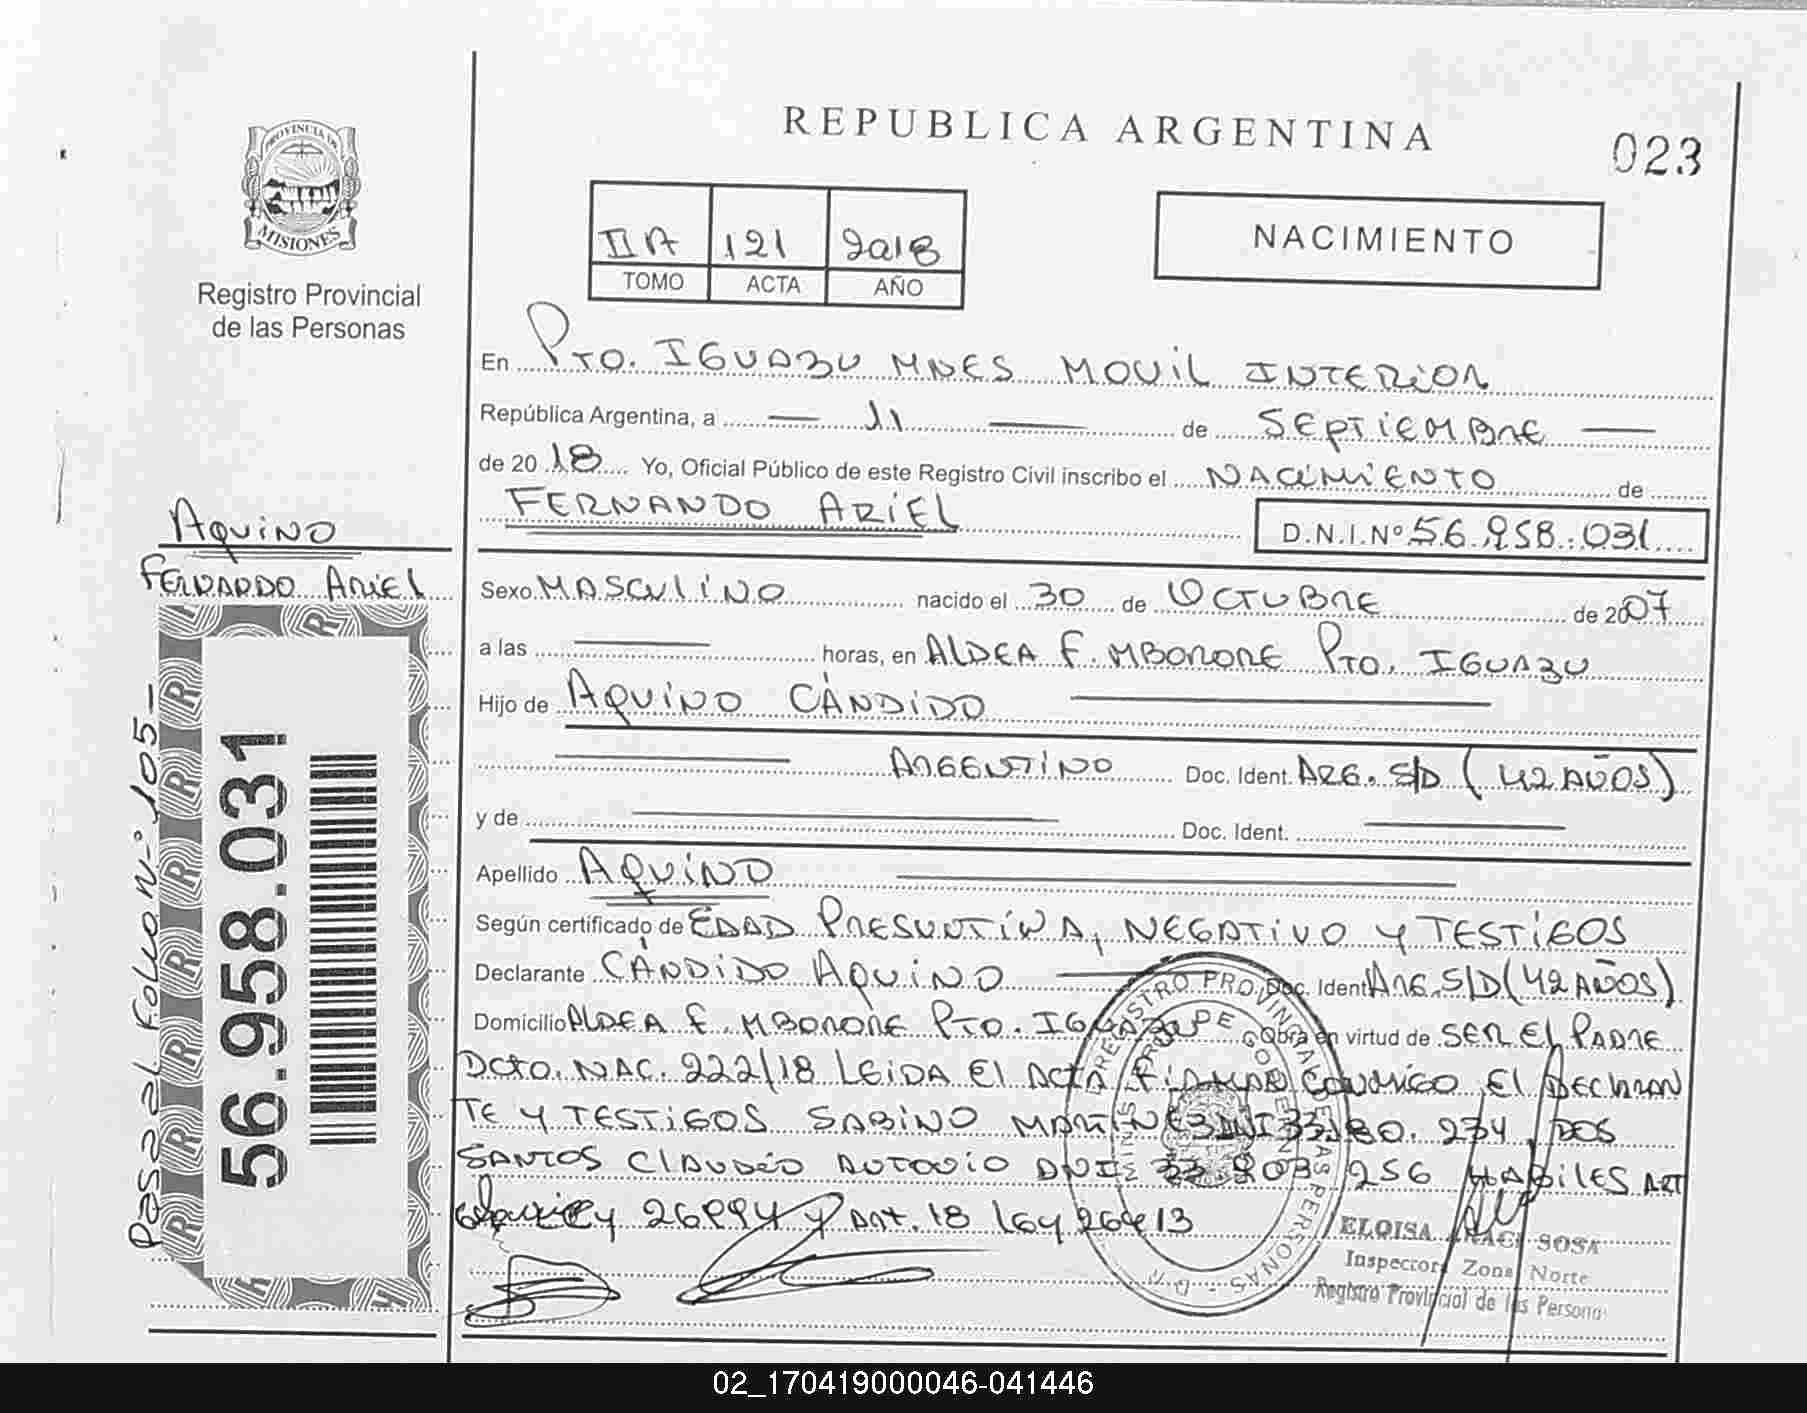 REPUBLICA ARGENTINA
023
PROVINCIA DE
MISIONES
Registro Provincial
de las Personas
II A 121 2018
TOMO ACTA AÑO
NACIMIENTO
En Pto. IGUAZU MNES MOVIL INTERIOR
República Argentina, a 11 de SEPTIEMBRE
de 20 18 Yo, Oficial Público de este Registro Civil inscribo el NACIMIENTO de
FERNANDO ARIEL
D.N.I.Nº 56.958.031
AQUINO
FERNARDO ARIEL
56.958.031
Pasa al Folio Nº 105-
Sexo MASCULINO nacido el 30 de OCTUBRE de 2007
a las horas, en ALDEA F. MBORORE Pto. IGUAZU
Hijo de AQUINO CÁNDIDO
ARGENTINO Doc. Ident. ARG. S/D (42 AÑOS)
y de Doc. Ident.
Apellido AQUINO
Según certificado de EDAD PRESUNTIVA, NEGATIVO Y TESTIGOS
Declarante CÁNDIDO AQUINO Doc. Ident ARG. S/D (42 AÑOS)
Domicilio ALDEA F. MBORORE Pto. IGUAZU Obra en virtud de SER EL PADRE
DCTO. NAC. 222/18 LEIDA EL ACTA FIRMAN CONMIGO EL DECLARAN
TE Y TESTIGOS SABINO 234, DOS
SANTOS CLAUDIO ANTONIO DNI 256 HABILES ART
ley 26994 y Art. 18 ley 26413
REGISTRO PROVINCIAL DE LAS PERSONAS
ELOISA ARACI SOSA
Inspectora Zona Norte
Registro Provincial de las Personas
02_170419000046-041446